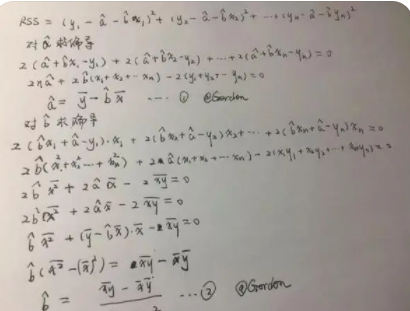 RSS = (y₁ - â - b̂x₁)² + (y₂ - â - b̂x₂)² + ... + (yₙ - â - b̂yₙ)²
对 â 求偏导
2(â + b̂x₁ - y₁) + 2(â + b̂x₂ - y₂) + ... + 2(â + b̂xₙ - yₙ) = 0
2nâ + 2b̂(x₁ + x₂ + ... xₙ) - 2(y₁ + y₂ + ... yₙ) = 0
â = ȳ - b̂x̄ ... ① @Gordon
对 b̂ 求偏导
2(b̂x₁ + â - y₁)·x₁ + 2(b̂x₂ + â - y₂)x₂ + ... + 2(b̂xₙ + â - yₙ)xₙ = 0
2b̂(x₁² + x₂² ... + xₙ²) + 2â(x₁ + x₂ + ... xₙ) - 2(x₁y₁ + x₂y₂ + ... xₙyₙ) = 0
2b̂ x̅²̅ + 2âx̄ - 2 x̅y̅ = 0
2b̂ x̅²̅ + 2âx̄ - 2 x̅y̅ = 0
b̂ x̅²̅ + (ȳ - b̂x̄)·x̄ - x̅y̅ = 0
b̂(x̅²̅ - (x̄)²) = x̅y̅ - x̄ȳ
b̂ = x̅y̅ - x̄ȳ ... ② @Gordon